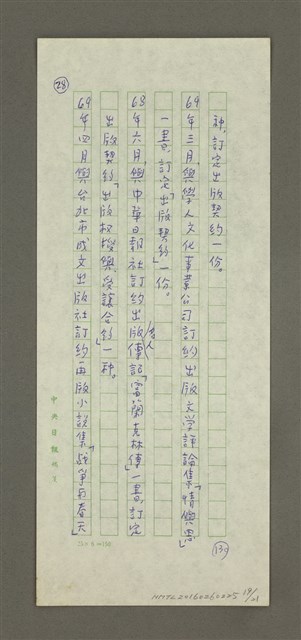 種,訂定出版契約一份。
69年三月,與學人文化事業公司訂約出版文学評論集「情與思」
一書,訂定「出版契約」一份。
68年六月,與中華日報社訂約出版名人傳記「富蘭克林傳」一書,訂定
出版契約「出版权授與,受讓合約」一种。
69年四月與台北市成文出版社訂約再版小說集「戰爭与春天」
(28)
(130)
中央日報稿紙
NMTL20160260225 19/21